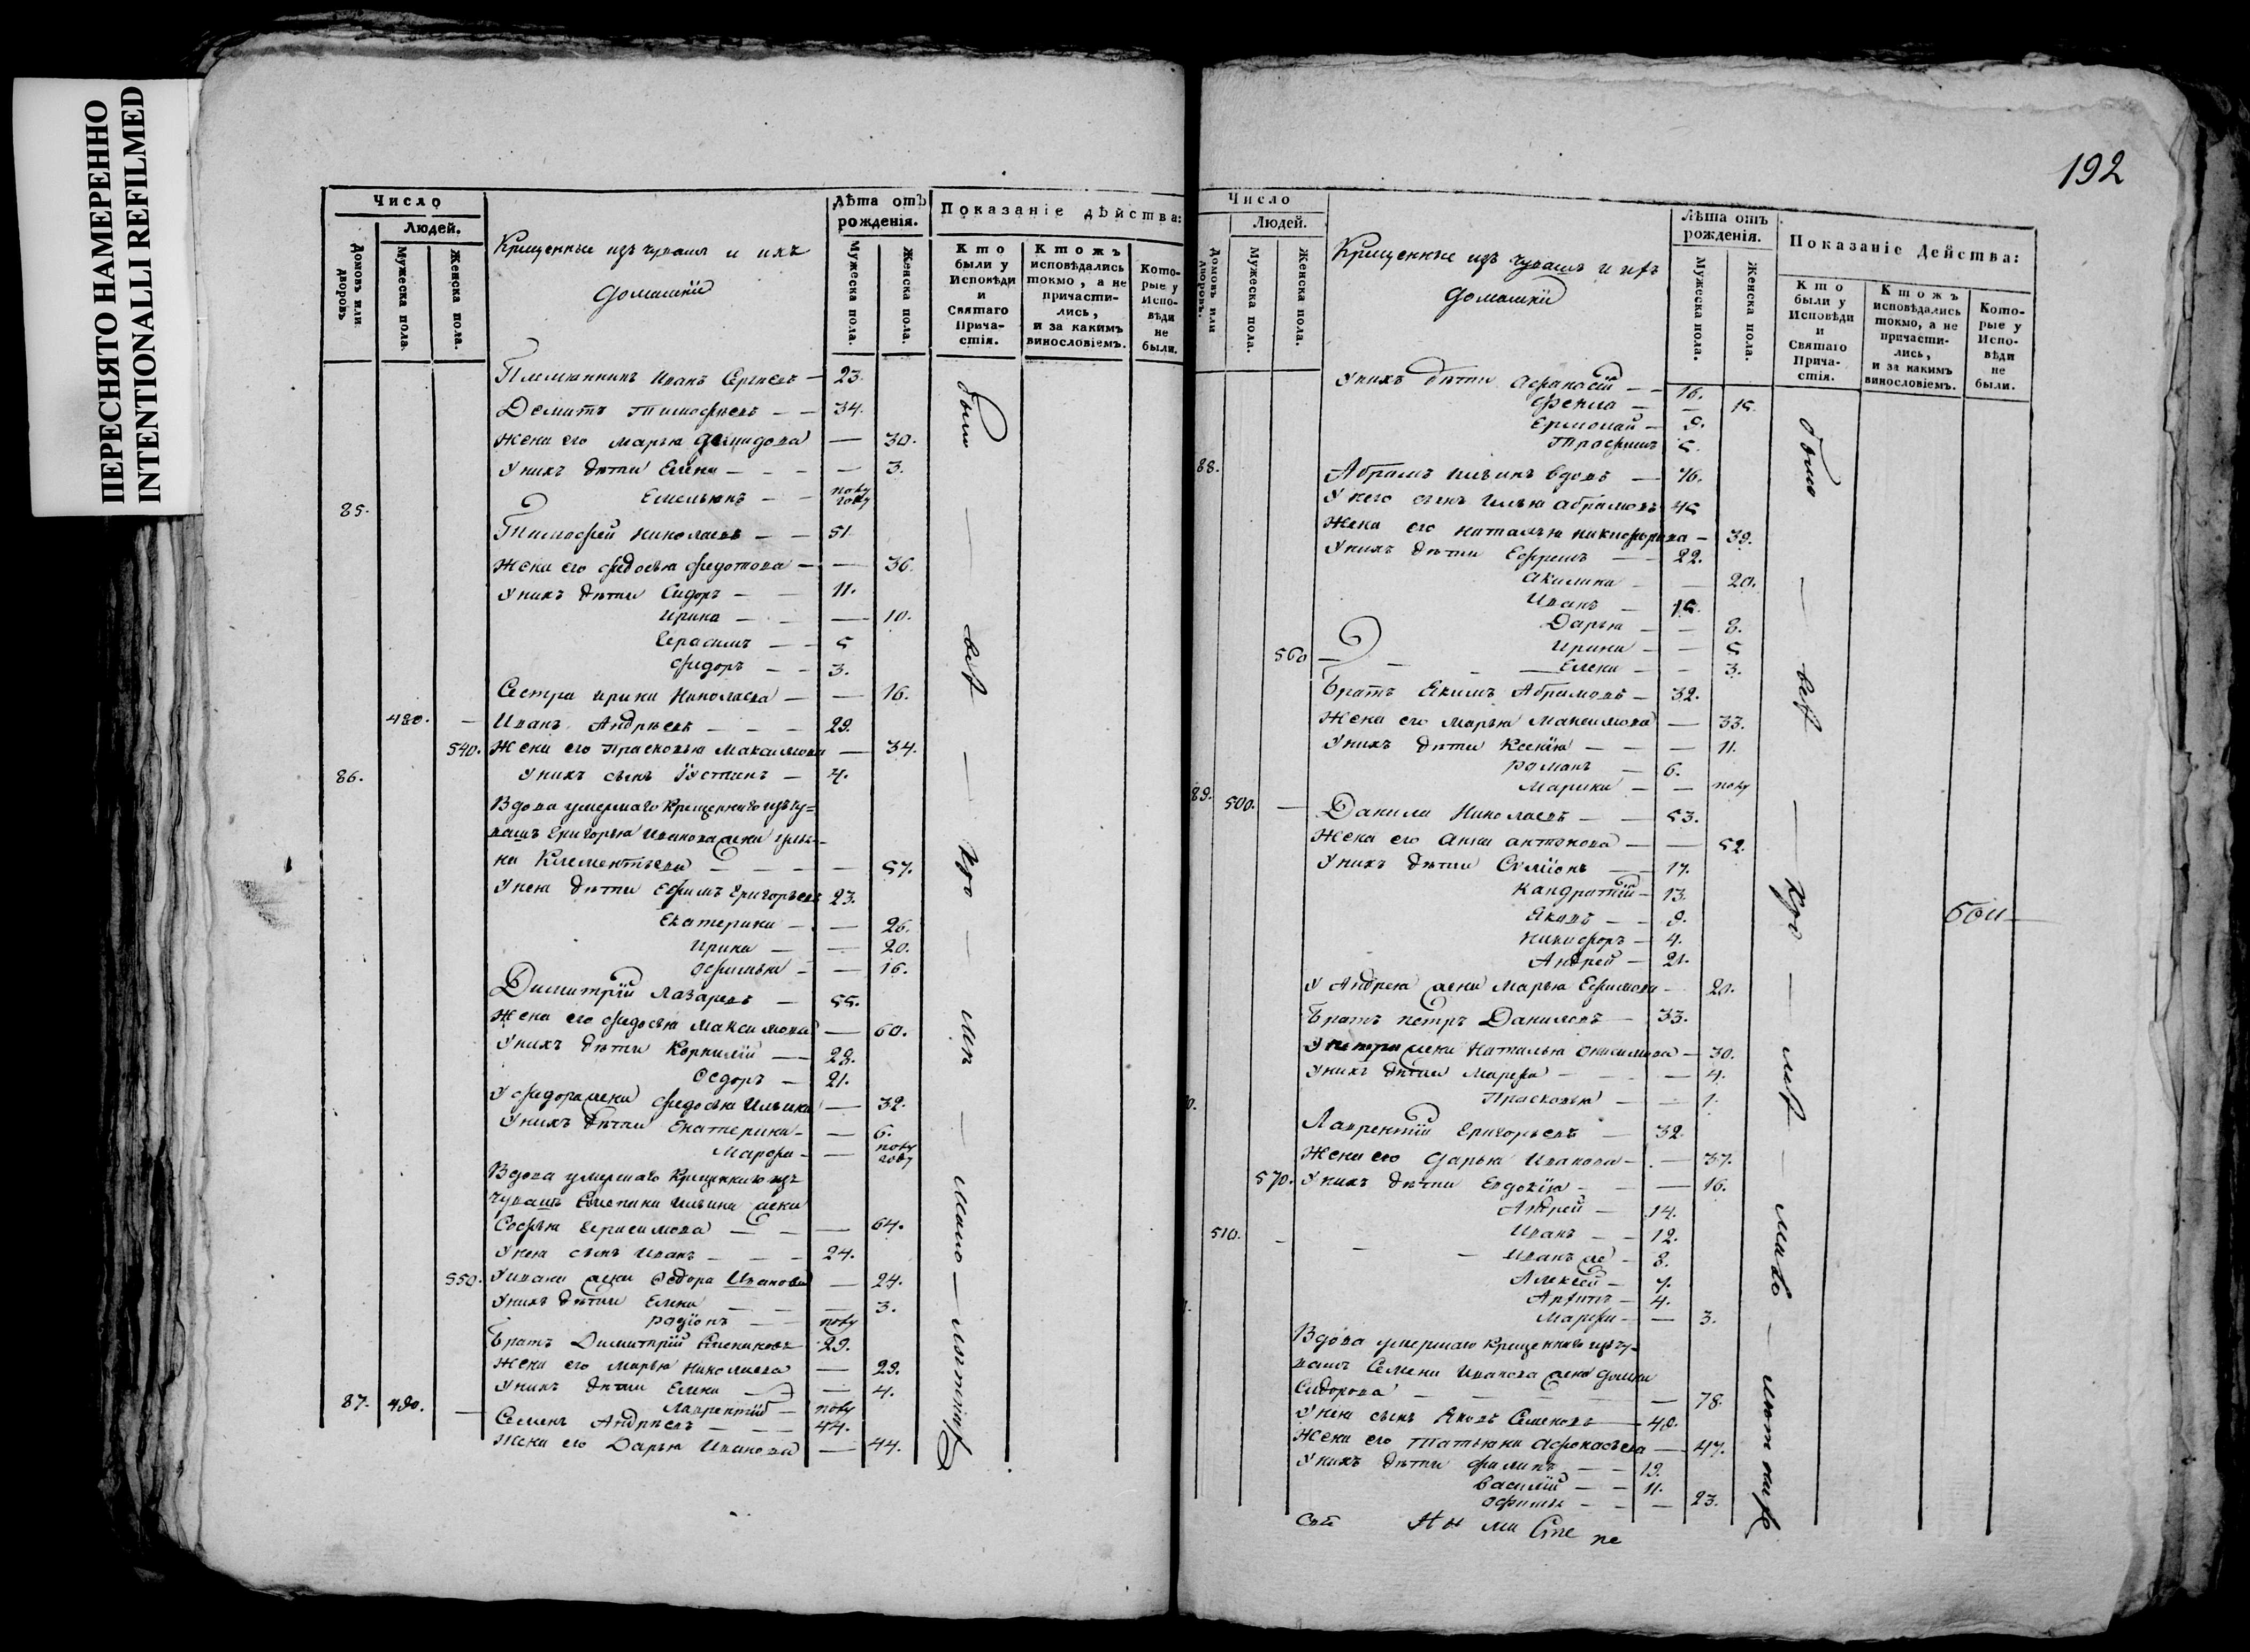 ПЕРЕСНЯТО НАМЕРЕННО
INTENTIONALLI REFILMED
Число
Людей.
Домовъ или дворовъ
Мужеска пола.
Женска пола.
Крещенные изъ чувашъ и ихъ
домашнiи
Лѣта отъ рожденiя.
Мужеска пола.
Женска пола.
Показанiе дѣйства:
Кто были у Исповѣди и Святаго Прича-стiя.
Ктожъ исповѣдались токмо, а не причасти-лись, и за какимъ винословiемъ.
Кото-рые у Испо-вѣди не были.
Племянникъ Иванъ Сергѣевъ — 23.
Демитъ Тимофѣевъ — — 34.
Жена его Марья Демидова — 30.
У нихъ дѣти Елена — — — 3.
Емельянъ — — полу году
85.
Тимофей Николаевъ — — 51
Жена его Федосья Федотова — — 36.
У нихъ дѣти Сидоръ — — 11.
Ирина — — — 10.
Герасимъ — — 5
Федоръ — — 3.
Сестра Ирина Николаева — — 16.
480. — Иванъ Андрѣевъ — — — 29.
540. Жена его Прасковья Максимова — 34.
86. У нихъ сынъ Iустинъ — 4.
Вдова умершаго Крещеннаго изъ чу=
вашъ Григорья Иванова жена
на Клементьева — — — — 57.
У нея дѣти Ефимъ Григорьевъ 23.
Екатерина — — 26.
Ирина — — 20.
Офимья — — 16.
Димитрiй Лазаревъ — 55.
Жена его Федосья Максимова — 60.
У нихъ дѣти Корнилiй — — 28.
Федоръ — 21.
У Федора жена Федосья Ильина — 32.
У нихъ дѣти Екатерина — — 6.
Марфа — — полу году
Вдова умершаго Крещеннаго изъ
чувашъ Семена Ильина жена
Софья Герасимова — — — 64.
У нея сынъ Иванъ — — — 24.
550. У Ивана жена Федора Иванова — 24.
У нихъ дѣти Елена — — — 3.
Радiонъ — — полу
Братъ Димитрiй Семеновъ 29.
Жена его Марья Николаева — 29.
У нихъ дѣти Елена — — 4.
Лаврентiй — полу
87. 490. — Семенъ Андрѣевъ — — — 44.
Жена его Дарья Иванова — 44.
были — всѣ — кро — мѣ — мало — лѣтнихъ
192
Число
Людей.
Домовъ или дворовъ.
Мужеска пола.
Женска пола.
Крещенные изъ чувашъ и ихъ
домашнiи
Лѣта отъ рожденiя.
Мужеска пола.
Женска пола.
Показанiе Действа:
Кто были у Исповѣди и Святаго Прича-стiя.
Ктожъ исповѣдались токмо, а не причасти-лись, и за какимъ винословiемъ.
Кото-рые у Испо-вѣди не были.
У нихъ дѣти Афанасiй — — 16.
Фекла — — 15.
Ермолай — 9.
Трофимъ 5.
88.
Абрамъ Ильинъ вдовъ — 76.
У него сынъ Илья Абрамовъ 45
Жена его Наталья Никифорова — 39.
У нихъ дѣти Ефремъ — — 22.
Акилина — — 20.
Иванъ — 15.
Дарья — — 8.
Ирина — — 5
560 — — — Елена — — 3.
Братъ Якимъ Абрамовъ — 32.
Жена его Марья Максимова — 33.
У нихъ дѣти Ксенiя — — — 11.
Романъ — 6.
Марина — — полу
89. 500. — Данила Николаевъ — — 53.
Жена его Анна Антонова — — 52.
У нихъ дѣти Семiонъ — — 17.
Кандратiй — 13.
Яковъ — — 9.
Никифоръ — 4.
Андрей — 21.
У Андрея жена Марья Ефимова — 20.
Братъ Петръ Даниловъ — 33.
У Петра жена Наталья Онисимова — 30.
У нихъ дѣти Марфа — — — 4.
Прасковья — — 1.
0.
Лаврентiй Григорьевъ — 32.
Жена его Дарья Иванова — — 37.
570. У нихъ дѣти Евдокiя — — 16.
Андрей — 14.
510. — — — Иванъ — — 12.
Иванъ же — 8.
Алексей — 7.
Архипъ — 4.
Марфа — — 3.
Вдова умершаго Крещеннаго изъ чу-
вашъ Семена Иванова жена Домна
Сидорова — — — — 78.
У нея сынъ Яковъ Семеновъ — 48.
Жена его Татьяна Афонасьева — 47.
У нихъ дѣти Филипъ — — 19.
Василiй — — 11.
Офимья — — — 23.
были — всѣ — кро — мѣ — мало — лѣтнихъ